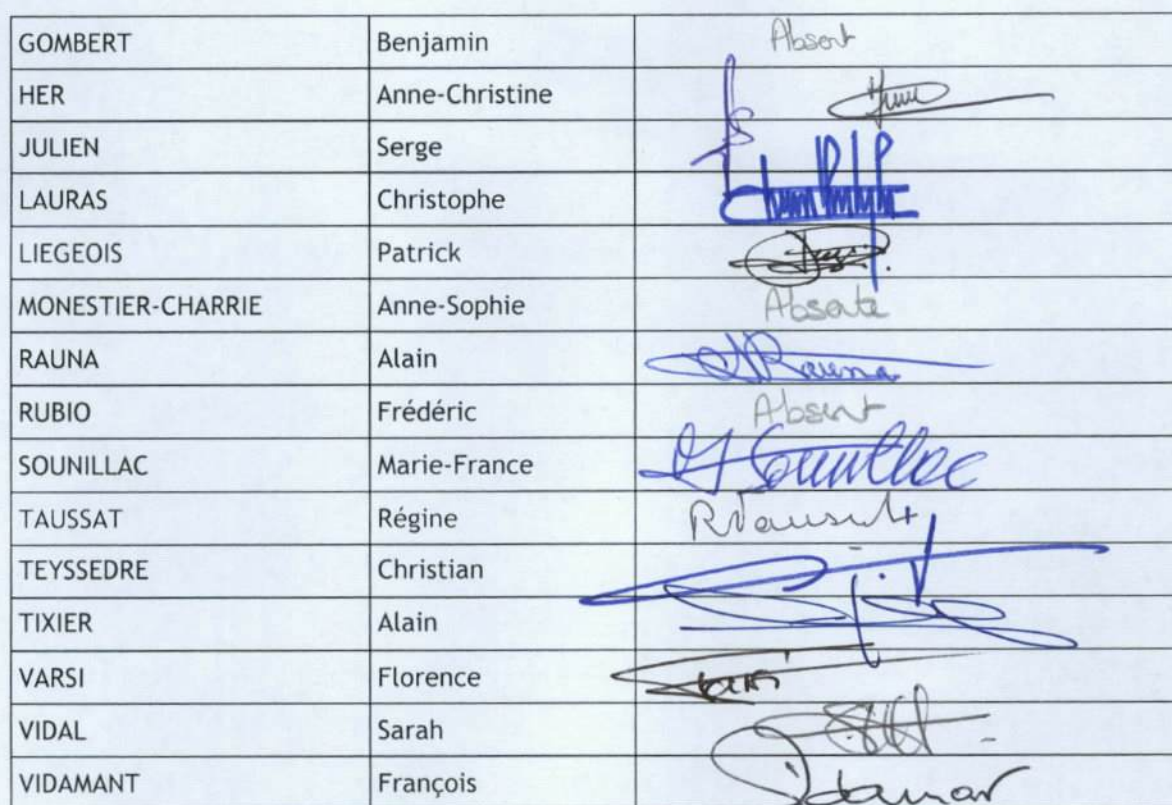 GOMBERT Benjamin Absent
HER Anne-Christine
JULIEN Serge
LAURAS Christophe
LIEGEOIS Patrick
MONESTIER-CHARRIE Anne-Sophie Absente
RAUNA Alain Rauna
RUBIO Frédéric Absent
SOUNILLAC Marie-France Sounillac
TAUSSAT Régine
TEYSSEDRE Christian
TIXIER Alain
VARSI Florence
VIDAL Sarah
VIDAMANT François